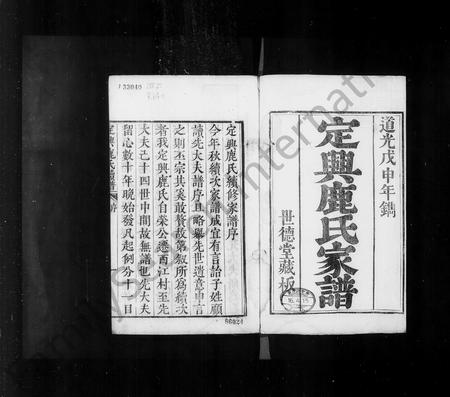 道光戊申年鐫
定興鹿氏家譜
世德堂藏板
定興鹿氏續修家譜序
今年秋續次家譜成宜有言詒子姓顧
讀先大夫譜序且略舉先世遺意申言
之則丕宗共奚敢贅故第叙所為續次
者我定興鹿氏自榮公遷酉江村至先
大夫已十四世中間故無譜也先大夫
留心數十年晚始發凡起例分十一日
定興鹿氏家譜 序
133040
86024
FamilySearch International